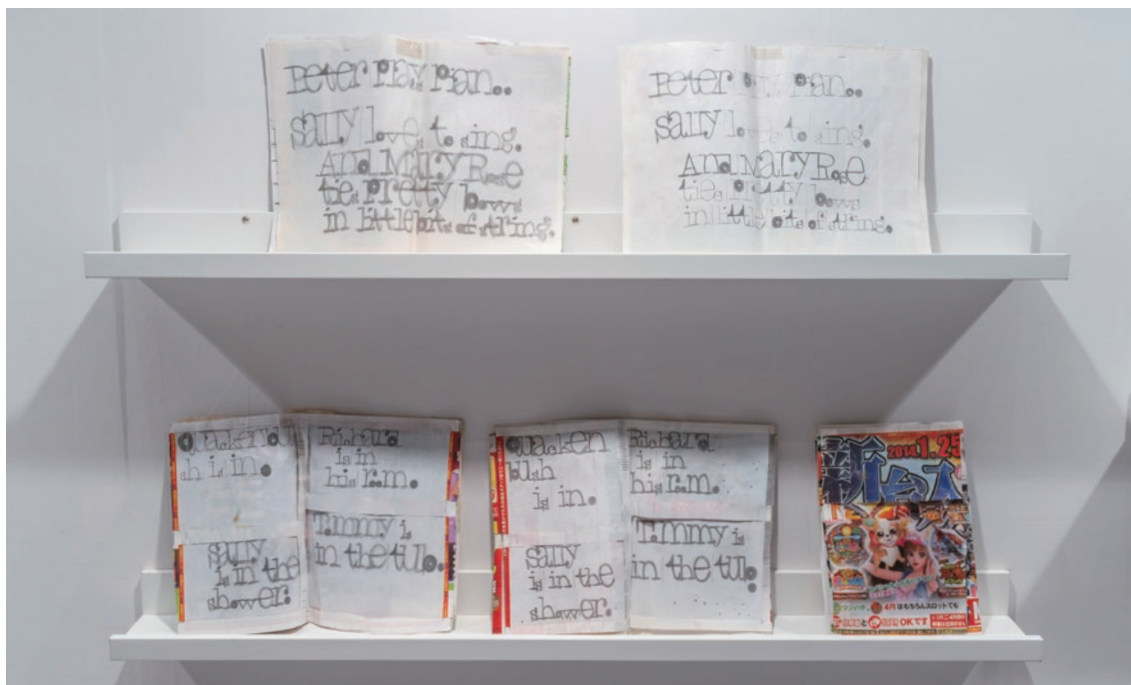 Peter Plays Piano.
sally loves to sing.
And Mary Rose
ties Pretty bows
in little bits of string.
Peter Plays Piano.
sally loves to sing.
And Mary Rose
ties Pretty bows
in little bits of string.
Quackenbu
sh is in.
sally
is in the
shower.
Richard
is in
his room.
Timmy is
in the tub.
Quacken
bush
is in.
sally
is in the
shower.
Richard
is in
his room.
Timmy is
in the tub.
2014 1.25
新台入
4円はもちろんスロットでも
と OKです